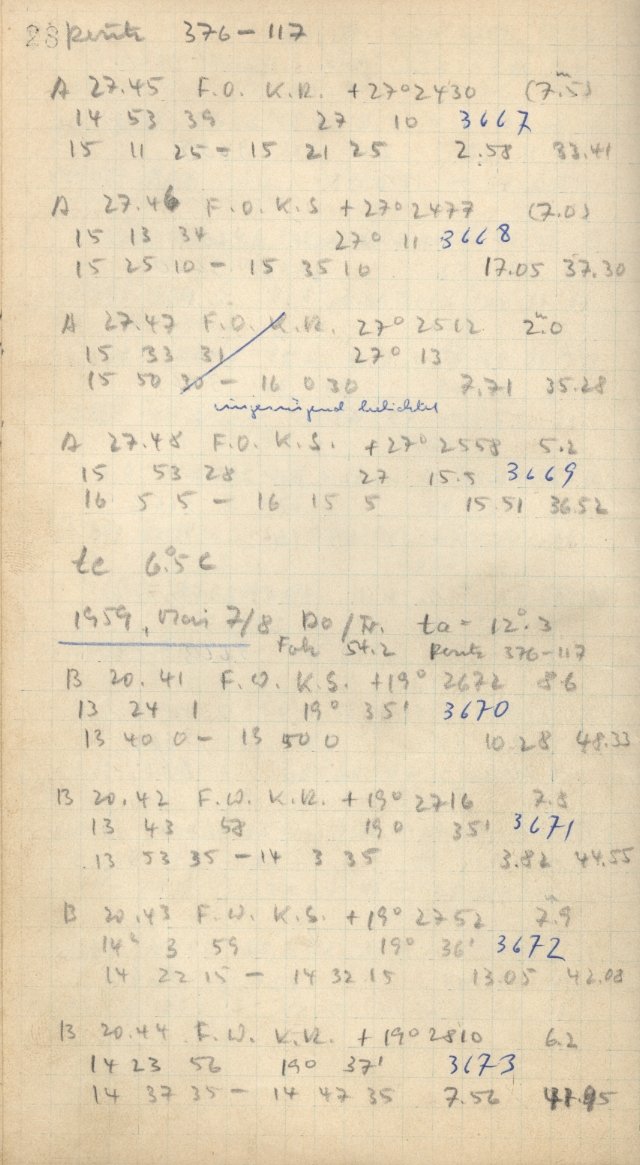 28 Perutz 376-117
A 27.45 F.O. K.R. +27°2430 (7.5)
14 53 39 27 10 3667
15 11 25 - 15 21 25 2.58 33.41
A 27.46 F.O. K.S +27°2477 (7.0)
15 13 34 27° 11 3668
15 25 10 - 15 35 10 17.05 37.30
A 27.47 F.O. K.R. 27° 2512 2.0
15 33 31 27° 13
15 50 30 - 16 0 30 7.71 35.28
ungenügend belichtet
A 27.48 F.O. K.S. +27° 2558 5.2
15 53 28 27 15.5 3669
16 5 5 - 16 15 5 15.51 36.52
te 6.5 C
1959, Mai 7/8 Do/Fr. ta = 12.3
Fok 54.2 Perutz 376-117
B 20.41 F.W. K.S. +19° 2672 8.6
13 24 1 19° 35' 3670
13 40 0 - 13 50 0 10.28 48.33
B 20.42 F.W. K.R. +19° 2716 7.8
13 43 58 190 35' 3671
13 53 35 - 14 3 35 3.82 44.55
B 20.43 F.W. K.S. +19° 2752 7.9
14h 3 59 19° 36' 3672
14 22 15 - 14 32 15 13.05 42.08
B 20.44 F.W. K.R. +19°2810 6.2
14 23 56 190 37' 3673
14 37 35 - 14 47 35 7.56